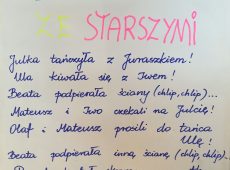 ZE STARSZYMI
Julka tańczyła z Juraszkiem!
Ula kiwała się z Iwem!
Beata podpierała ściany (chlip, chlip)...
Mateusz i Iwo czekali na Julcię!
Olaf i Mateusz prosili do tańca
Ulę!
Beata podpierała inną ścianę (chlip, chlip)...